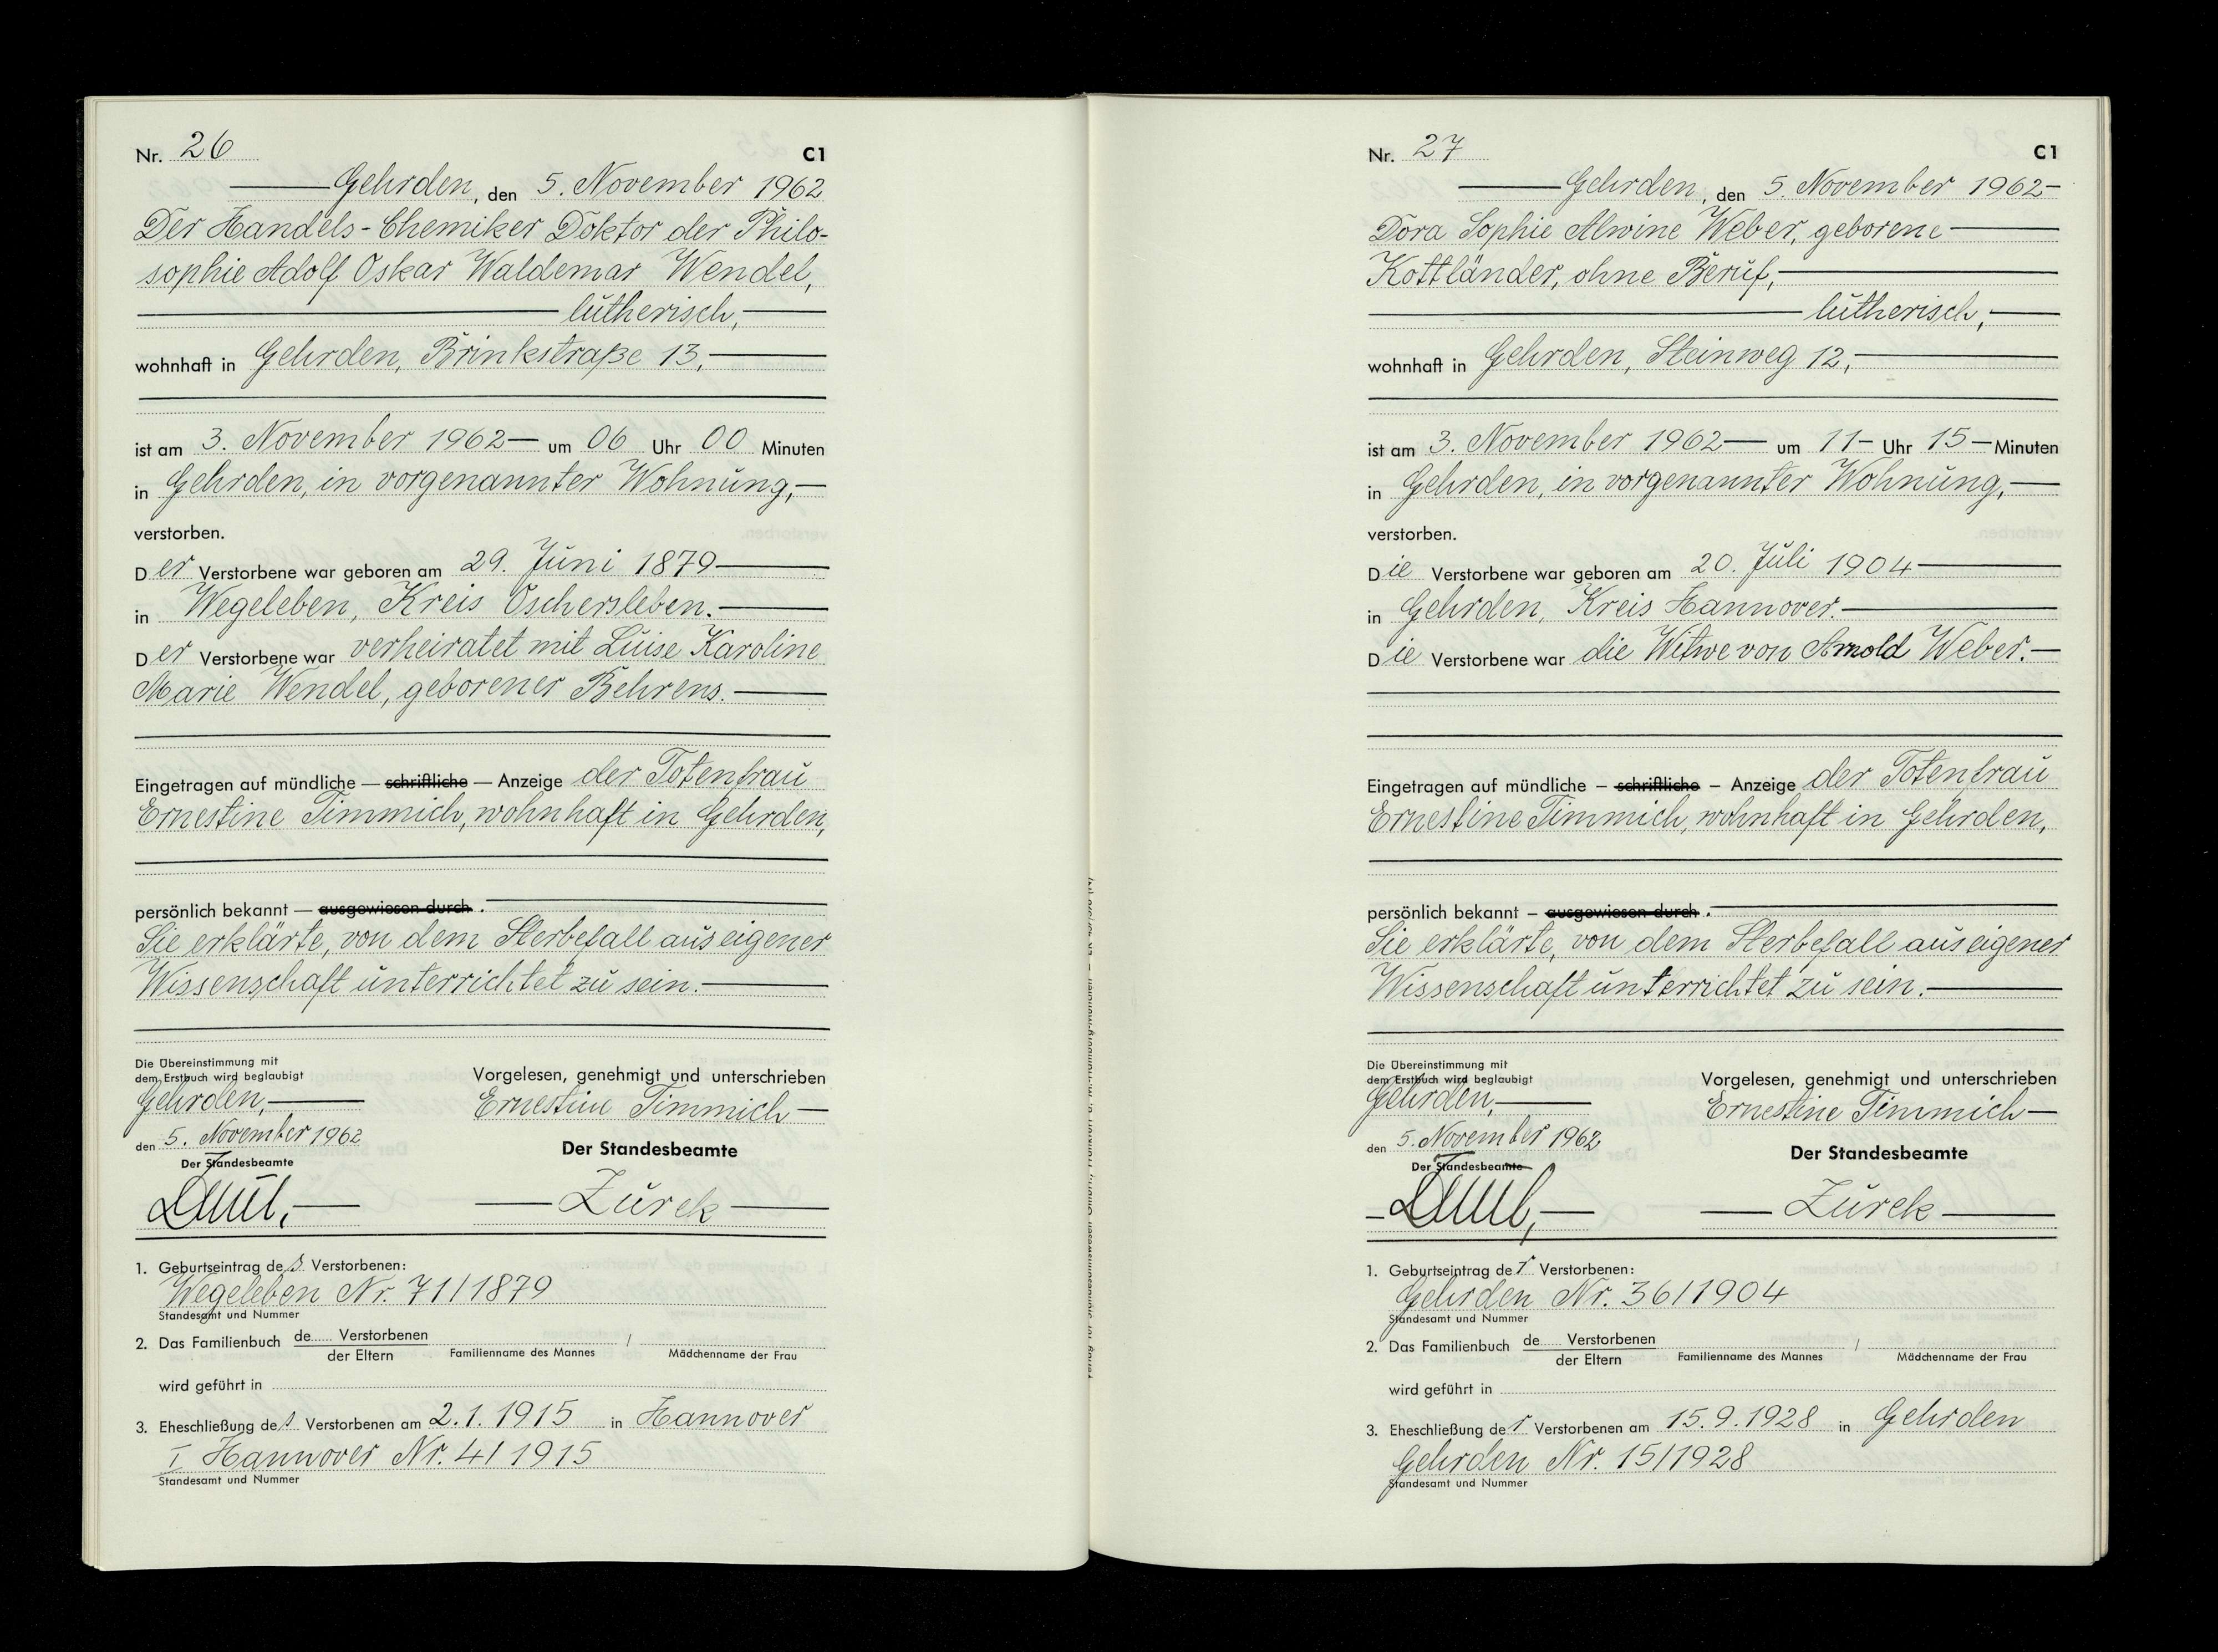 Nr. 26 C1
Gehrden, den 5. November 1962
Der Handels-Chemiker Doktor der Philo-
sophie Adolf Oskar Waldemar Wendel,
lutherisch,
wohnhaft in Gehrden, Brinkstraße 13,
ist am 3. November 1962 um 06 Uhr 00 Minuten
in Gehrden, in vorgenannter Wohnung,
verstorben.
Der Verstorbene war geboren am 29. Juni 1879
in Wegeleben, Kreis Oschersleben.
Der Verstorbene war verheiratet mit Luise Karoline
Marie Wendel, geborener Behrens.
Eingetragen auf mündliche — schriftliche — Anzeige der Totenfrau
Ernestine Timmich, wohnhaft in Gehrden,
persönlich bekannt — ausgewiesen durch.
Sie erklärte, von dem Sterbefall aus eigener
Wissenschaft unterrichtet zu sein.
Die Übereinstimmung mit
dem Erstbuch wird beglaubigt
Gehrden,
den 5. November 1962
Der Standesbeamte
Vorgelesen, genehmigt und unterschrieben
Ernestine Timmich
Der Standesbeamte
Zurek
1. Geburtseintrag des Verstorbenen:
Wegeleben Nr. 71/1879
Standesamt und Nummer
2. Das Familienbuch de..... Verstorbenen /
der Eltern Familienname des Mannes Mädchenname der Frau
wird geführt in
3. Eheschließung des Verstorbenen am 2.1.1915 in Hannover
I Hannover Nr. 4/1915
Standesamt und Nummer
Nr. 27 C1
Gehrden, den 5. November 1962
Dora Sophie Alwine Weber, geborene
Kottländer, ohne Beruf,
lutherisch,
wohnhaft in Gehrden, Steinweg 12,
ist am 3. November 1962 um 11 Uhr 15 Minuten
in Gehrden, in vorgenannter Wohnung,
verstorben.
Die Verstorbene war geboren am 20. Juli 1904
in Gehrden, Kreis Hannover.
Die Verstorbene war die Witwe von Arnold Weber.
Eingetragen auf mündliche — schriftliche — Anzeige der Totenfrau
Ernestine Timmich, wohnhaft in Gehrden,
persönlich bekannt — ausgewiesen durch.
Sie erklärte, von dem Sterbefall aus eigener
Wissenschaft unterrichtet zu sein.
Die Übereinstimmung mit
dem Erstbuch wird beglaubigt
Gehrden,
den 5. November 1962
Der Standesbeamte
Vorgelesen, genehmigt und unterschrieben
Ernestine Timmich
Der Standesbeamte
Zurek
1. Geburtseintrag der Verstorbenen:
Gehrden Nr. 36/1904
Standesamt und Nummer
2. Das Familienbuch de..... Verstorbenen /
der Eltern Familienname des Mannes Mädchenname der Frau
wird geführt in
3. Eheschließung der Verstorbenen am 15.9.1928 in Gehrden
Gehrden Nr. 15/1928
Standesamt und Nummer